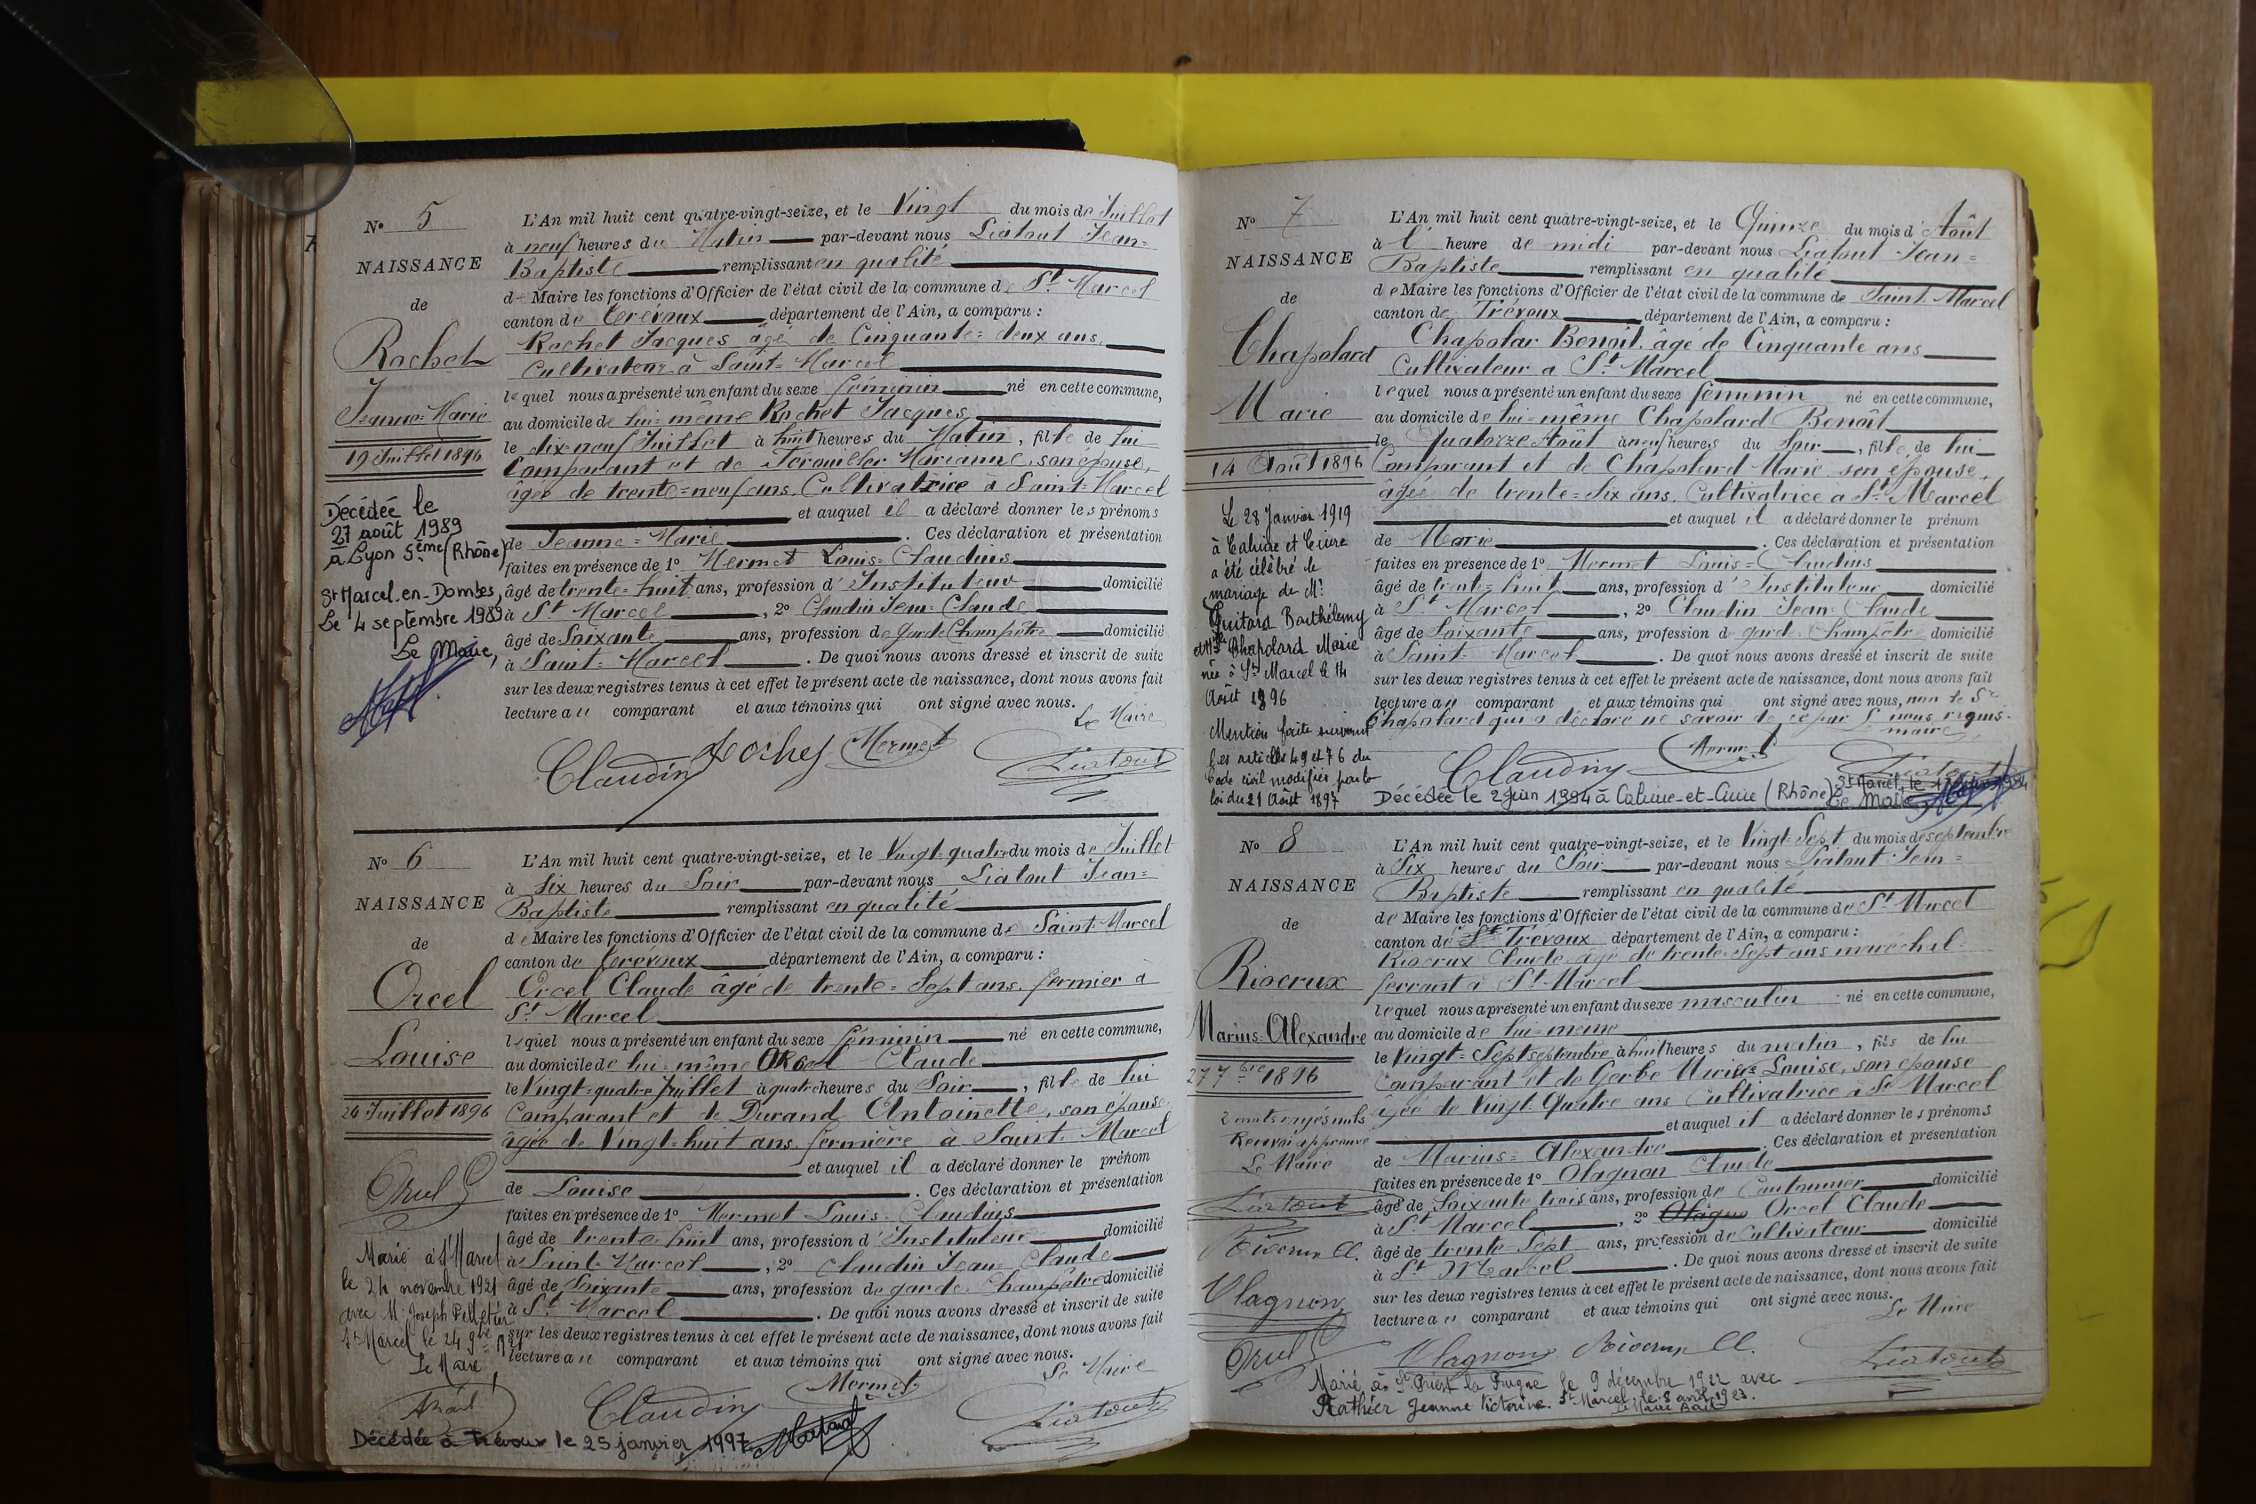 N° 5
NAISSANCE
de
Rochet
Jeanne=Marie
19 Juillet 1896
Décédée le
27 août 1989
à Lyon 5ème (Rhône)
St Marcel-en-Dombes,
Le 4 septembre 1989
Le Maire,
L'An mil huit cent quatre-vingt-seize, et le Vingt du mois de Juillet
à neuf heures du Matin par-devant nous Liatout Jean=
Baptiste remplissant en qualité
de Maire les fonctions d'Officier de l'état civil de la commune de St Marcel
canton de Trévoux département de l'Ain, a comparu :
Rochet Jacques âgé de Cinquante=deux ans,
Cultivateur à Saint=Marcel
lequel nous a présenté un enfant du sexe féminin né en cette commune,
au domicile de lui=même Rochet Jacques
le dix-neuf Juillet à huit heures du Matin, fille de lui
Comparant et de Marianne, son épouse,
âgée de trente=neuf ans. Cultivatrice à Saint=Marcel
et auquel il a déclaré donner les prénoms
de Jeanne=Marie. Ces déclaration et présentation
faites en présence de 1° Mermet Louis=Claudius
âgé de trente=huit ans, profession d'Instituteur domicilié
à St Marcel, 2° Claudin Jean=Claude
âgé de Soixante ans, profession de garde Champêtre domicilié
à Saint=Marcel. De quoi nous avons dressé et inscrit de suite
sur les deux registres tenus à cet effet le présent acte de naissance, dont nous avons fait
lecture au comparant et aux témoins qui ont signé avec nous.
Le Maire
Claudin Rochet Mermet Liatout
N° 6
NAISSANCE
de
Orcel
Louise
24 Juillet 1896
Orcel
Marié à St Marcel
le 24 novembre 1921
avec M. Joseph Pelletier
St Marcel le 24 9bre 1921
Le Maire
L'An mil huit cent quatre-vingt-seize, et le Vingt=quatre du mois de Juillet
à Six heures du Soir par-devant nous Liatout Jean=
Baptiste remplissant en qualité
de Maire les fonctions d'Officier de l'état civil de la commune de Saint=Marcel
canton de Trévoux département de l'Ain, a comparu :
Orcel Claude âgé de trente=Sept ans, fermier à
St Marcel
lequel nous a présenté un enfant du sexe féminin né en cette commune,
au domicile de lui=même Orcel Claude
le Vingt=quatre Juillet à quatre heures du Soir, fille de lui
Comparant et de Durand Antoinette, son épouse,
âgée de Vingt=huit ans, fermière à Saint=Marcel
et auquel il a déclaré donner le prénom
de Louise. Ces déclaration et présentation
faites en présence de 1° Mermet Louis=Claudius
âgé de trente=huit ans, profession d'Instituteur domicilié
à Saint=Marcel, 2° Claudin Jean=Claude
âgé de Soixante ans, profession de garde=Champêtre domicilié
à St Marcel. De quoi nous avons dressé et inscrit de suite
sur les deux registres tenus à cet effet le présent acte de naissance, dont nous avons fait
lecture au comparant et aux témoins qui ont signé avec nous.
Le Maire
Claudin Mermet Liatout
Décédée à Trévoux le 25 janvier 1997
N° 7
NAISSANCE
de
Chapolard
Marie
14 Août 1896
Le 28 Janvier 1919
à Caluire et Cuire
a été célébré le
mariage de Mr
Guitard Barthélemy
et Mlle Chapolard Marie
née à St Marcel le 14
Août 1896
Mention faite suivant
les articles 49 et 76 du
Code civil modifiés par la
loi du 21 Août 1897
L'An mil huit cent quatre-vingt-seize, et le Quinze du mois d'Août
à l' heure de midi par-devant nous Liatout Jean=
Baptiste remplissant en qualité
de Maire les fonctions d'Officier de l'état civil de la commune de Saint Marcel
canton de Trévoux département de l'Ain, a comparu :
Chapolar Benoît, âgé de Cinquante ans
Cultivateur à St Marcel
lequel nous a présenté un enfant du sexe féminin né en cette commune,
au domicile de lui=même Chapolard Benoît
le Quatorze Août à neuf heures du Soir, fille de lui
Comparant et de Chapolard Marie son épouse,
âgée de trente=Six ans. Cultivatrice à St Marcel
et auquel il a déclaré donner le prénom
de Marie. Ces déclaration et présentation
faites en présence de 1° Mermet Louis=Claudius
âgé de trente=huit ans, profession d'Instituteur domicilié
à St Marcel, 2° Claudin Jean=Claude
âgé de Soixante ans, profession de garde=Champêtre domicilié
à Saint=Marcel. De quoi nous avons dressé et inscrit de suite
sur les deux registres tenus à cet effet le présent acte de naissance, dont nous avons fait
lecture au comparant et aux témoins qui ont signé avec nous, non le Sr
Chapolard qui a déclaré ne savoir de ce par nous requis.
Claudin Mermet Liatout maire
Décédée le 2 juin 1994 à Caluire-et-Cuire (Rhône)
St Marcel, le
Le Maire
N° 8
NAISSANCE
de
Riocrux
Marius-Alexandre
27 7bre 1896
2 mots rayés nuls
Renvoi approuvé
Le Maire
Liatout
Riocrux Cl.
Olagnon
Orcel
L'An mil huit cent quatre-vingt-seize, et le Vingt=Sept du mois de septembre
à Six heures du Soir par-devant nous Liatout Jean=
Baptiste remplissant en qualité
de Maire les fonctions d'Officier de l'état civil de la commune de St Marcel
canton de St Trévoux département de l'Ain, a comparu :
Riocrux Claude âgé de trente=Sept ans maréchal=
ferrant à St Marcel
lequel nous a présenté un enfant du sexe masculin né en cette commune,
au domicile de lui=même
le Vingt=Sept septembre à huit heures du matin, fils de lui
Comparant et de Gerbe Marie=Louise, son épouse
âgée de Vingt=Quatre ans Cultivatrice à St Marcel
et auquel il a déclaré donner les prénoms
de Marius=Alexandre. Ces déclaration et présentation
faites en présence de 1° Olagnon Claude
âgé de Soixante trois ans, profession de Cantonnier domicilié
à St Marcel, 2° Olagno Orcel Claude
âgé de trente Sept ans, profession de Cultivateur domicilié
à St Marcel. De quoi nous avons dressé et inscrit de suite
sur les deux registres tenus à cet effet le présent acte de naissance, dont nous avons fait
lecture au comparant et aux témoins qui ont signé avec nous.
Le Maire
Olagnon Riocrux Cl. Liatout
Marié à St Priest la Prugne le 9 décembre 1922 avec
Rathier Jeanne Victorine. St Marcel, le 8 avril 1923.
Le Maire